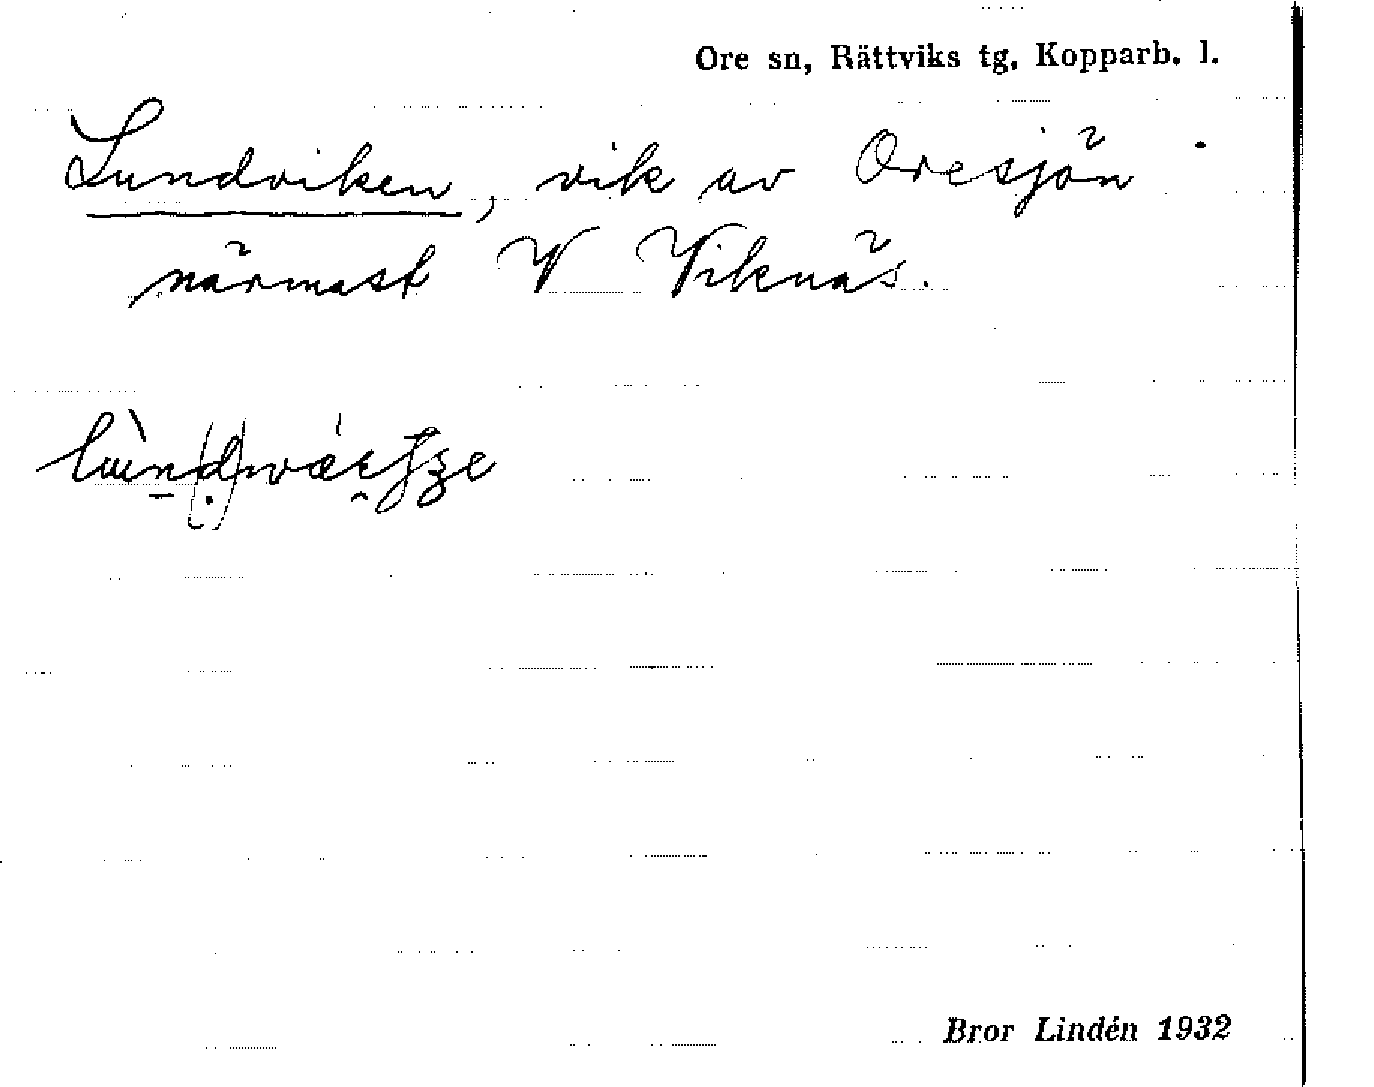 Ore sn, Rättviks tg, Kopparb. l.
Lundviken, vik av Oresjön
närmast V Viknäs.
Bror Lindén 1932